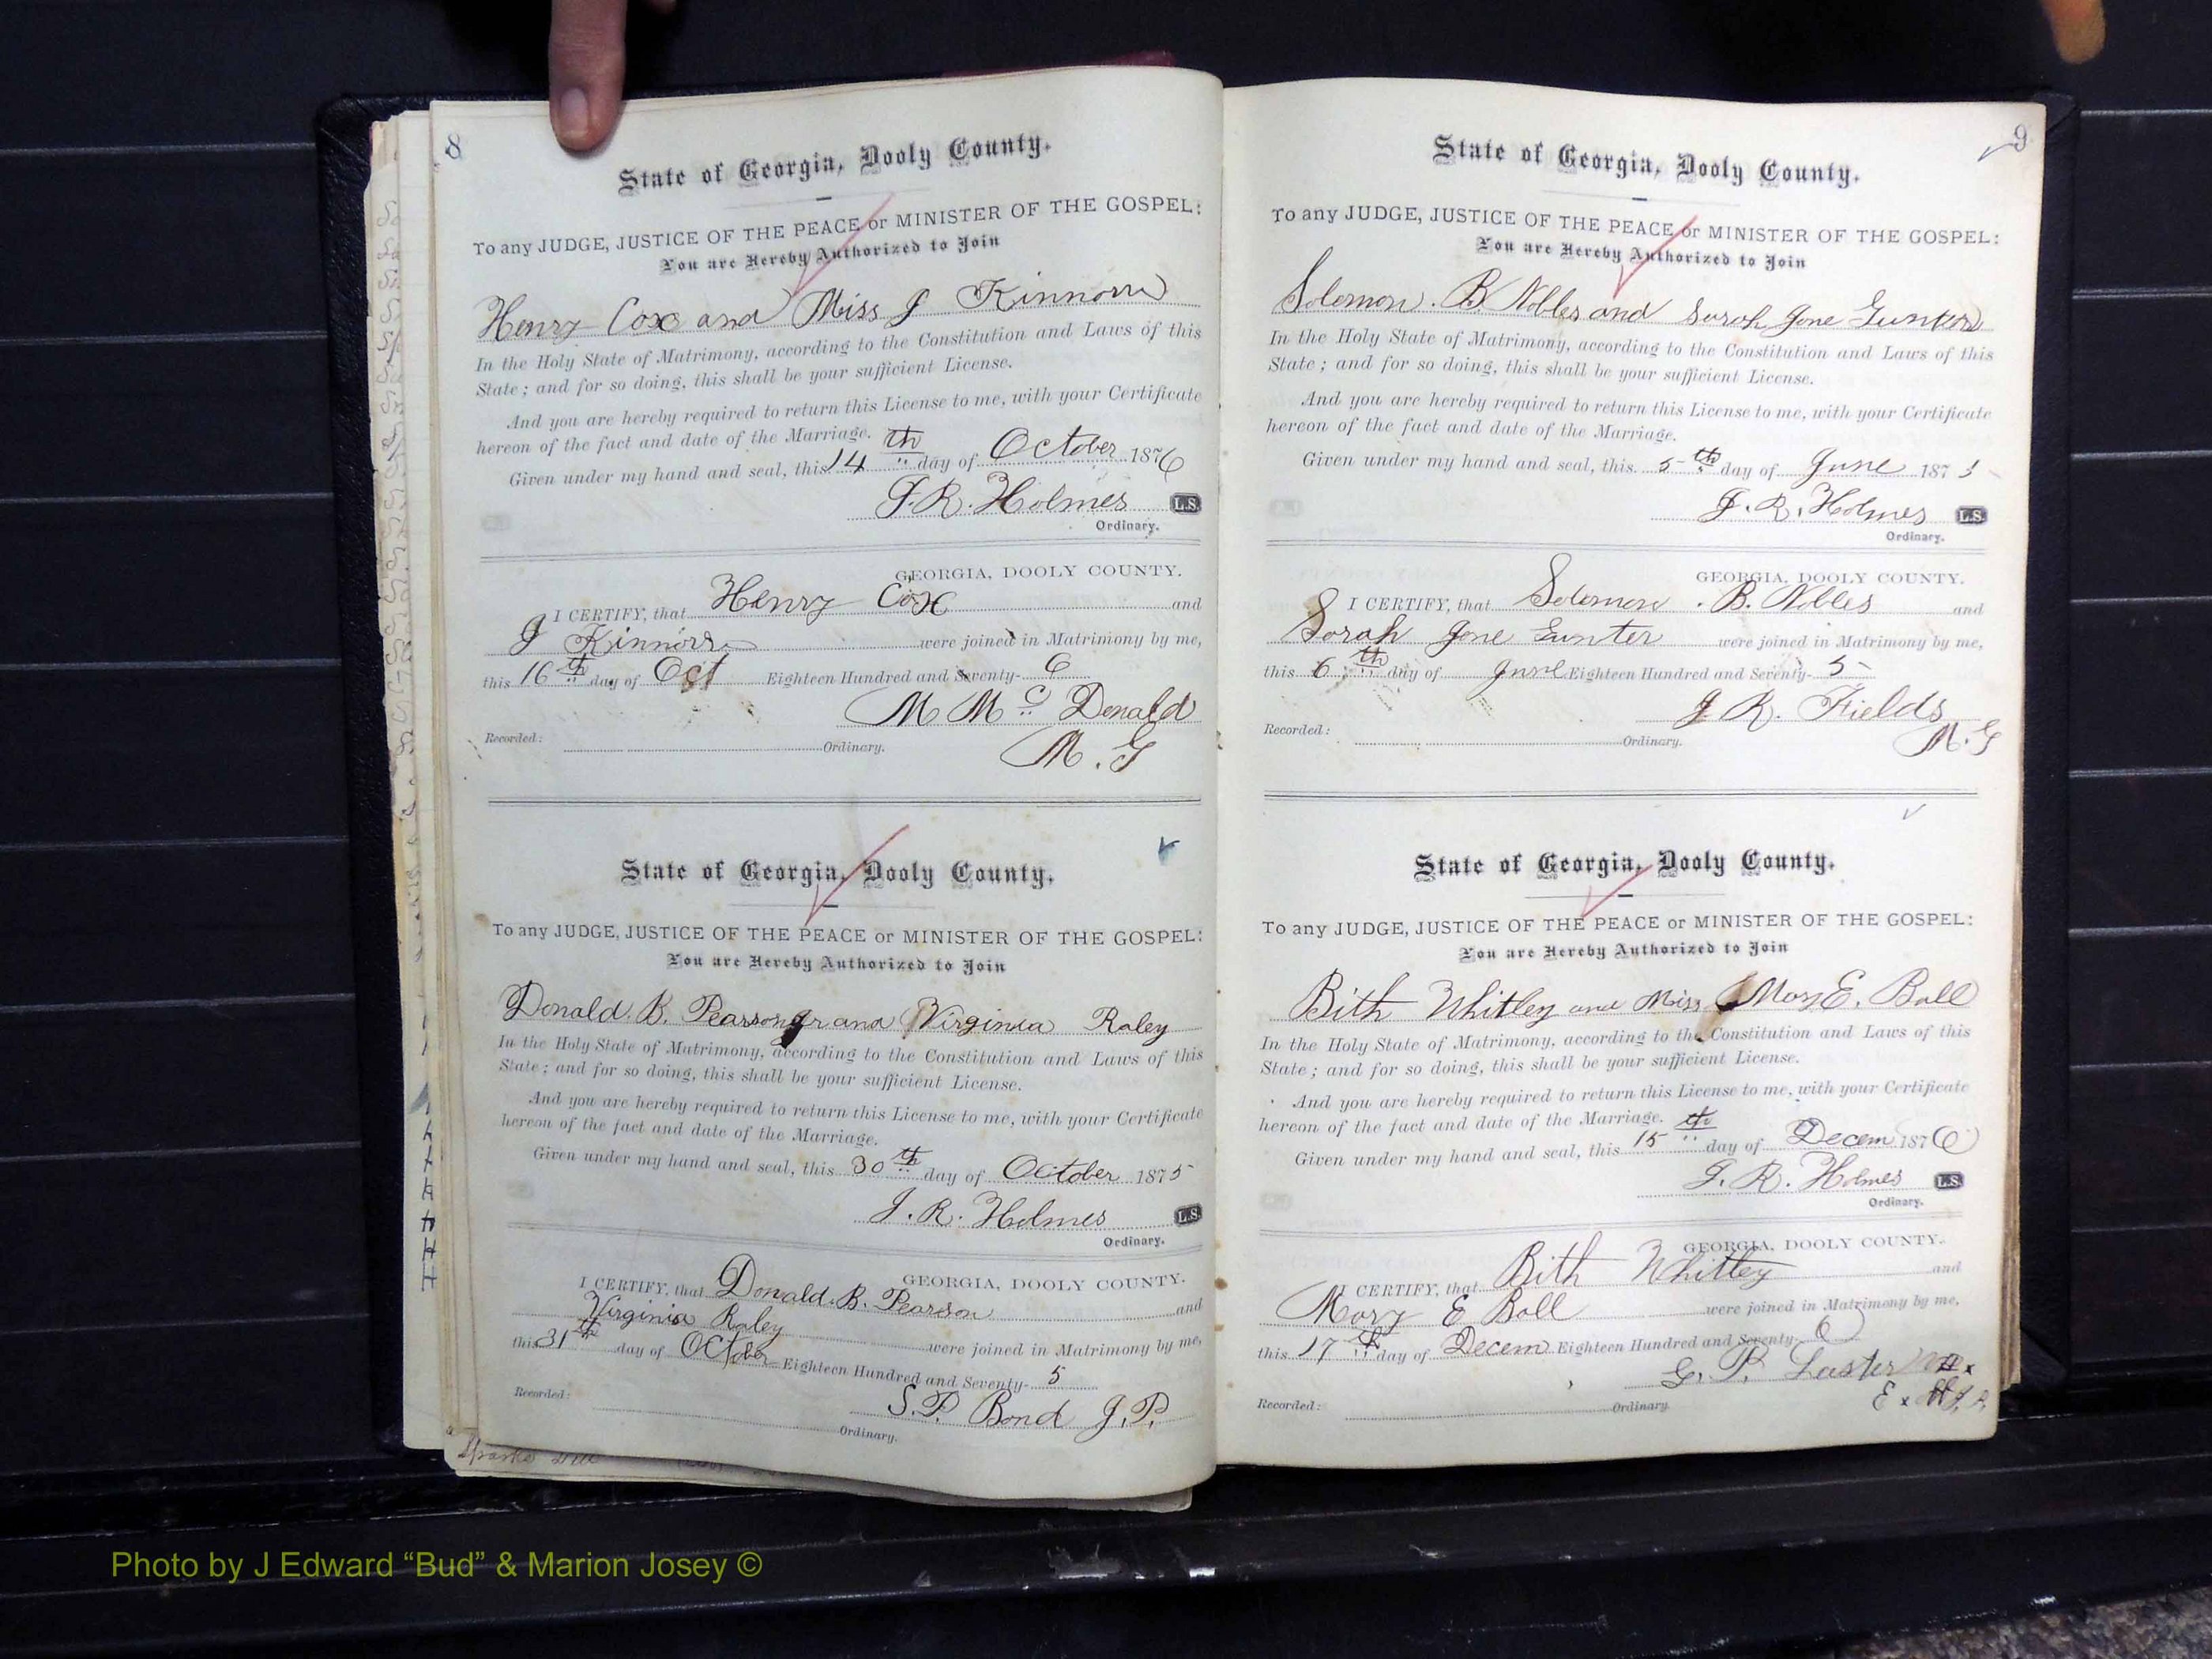 8
State of Georgia, Dooly County.
To any JUDGE, JUSTICE OF THE PEACE or MINISTER OF THE GOSPEL:
You are Hereby Authorized to Join
Henry Cox and Miss J Kinnorn
In the Holy State of Matrimony, according to the Constitution and Laws of this
State; and for so doing, this shall be your sufficient License.
And you are hereby required to return this License to me, with your Certificate
hereon of the fact and date of the Marriage.
Given under my hand and seal, this 14th day of October 1876
J. R. Holmes L.S.
Ordinary.
GEORGIA, DOOLY COUNTY.
I CERTIFY, that Henry Cox and
J were joined in Matrimony by me,
this 16th day of Oct Eighteen Hundred and Seventy- 6
M McDonald
Recorded: Ordinary.
M. G
State of Georgia, Dooly County.
To any JUDGE, JUSTICE OF THE PEACE or MINISTER OF THE GOSPEL:
You are Hereby Authorized to Join
Donald. B. Pearson Jr and Virginia Raley
In the Holy State of Matrimony, according to the Constitution and Laws of this
State; and for so doing, this shall be your sufficient License.
And you are hereby required to return this License to me, with your Certificate
hereon of the fact and date of the Marriage.
Given under my hand and seal, this 30th day of October 1875
J. R. Holmes L.S.
Ordinary.
GEORGIA, DOOLY COUNTY.
I CERTIFY, that Donald. B. Pearson and
Virginia Raley were joined in Matrimony by me,
this 31th day of October Eighteen Hundred and Seventy- 5
S. P. Bond J. P.
Recorded: Ordinary.
9
State of Georgia, Dooly County.
To any JUDGE, JUSTICE OF THE PEACE or MINISTER OF THE GOSPEL:
You are Hereby Authorized to Join
Solomon. B. Nobles and Sarah Jane Gunter
In the Holy State of Matrimony, according to the Constitution and Laws of this
State; and for so doing, this shall be your sufficient License.
And you are hereby required to return this License to me, with your Certificate
hereon of the fact and date of the Marriage.
Given under my hand and seal, this 5th day of June 1875
J. R. Holmes L.S.
Ordinary.
GEORGIA, DOOLY COUNTY.
I CERTIFY, that Solomon. B. Nobles and
Sarah Jane Gunter were joined in Matrimony by me,
this 6th day of June Eighteen Hundred and Seventy- 5
J R. Fields
Recorded: Ordinary.
M. G
State of Georgia, Dooly County.
To any JUDGE, JUSTICE OF THE PEACE or MINISTER OF THE GOSPEL:
You are Hereby Authorized to Join
Bith Whitley and Miss Mary E. Ball
In the Holy State of Matrimony, according to the Constitution and Laws of this
State; and for so doing, this shall be your sufficient License.
And you are hereby required to return this License to me, with your Certificate
hereon of the fact and date of the Marriage.
Given under my hand and seal, this 15th day of Decem 1876
J. R. Holmes L.S.
Ordinary.
GEORGIA, DOOLY COUNTY.
I CERTIFY, that Bith Whitley and
Mary E Ball were joined in Matrimony by me,
this 17th day of Decem Eighteen Hundred and Seventy- 6
G. P. Laster
Recorded: Ordinary
Photo by J Edward “Bud” & Marion Josey ©